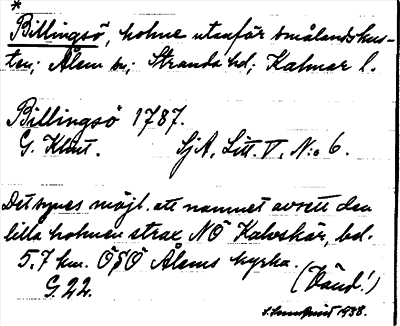 *
Billingsö, holme utanför Smålandskus-
ten; Ålem sn; Stranda hd; Kalmar l.
Billingsö 1787.
G. Klint. SjA, Litt. V, N:o 6.
Det synes möjl. att namnet avsett den
lilla holmen strax NÖ Kalvskär, bel.
5.7 km. ÖSÖ Ålems kyrka.
G. 22. (Vänd!)
1938.